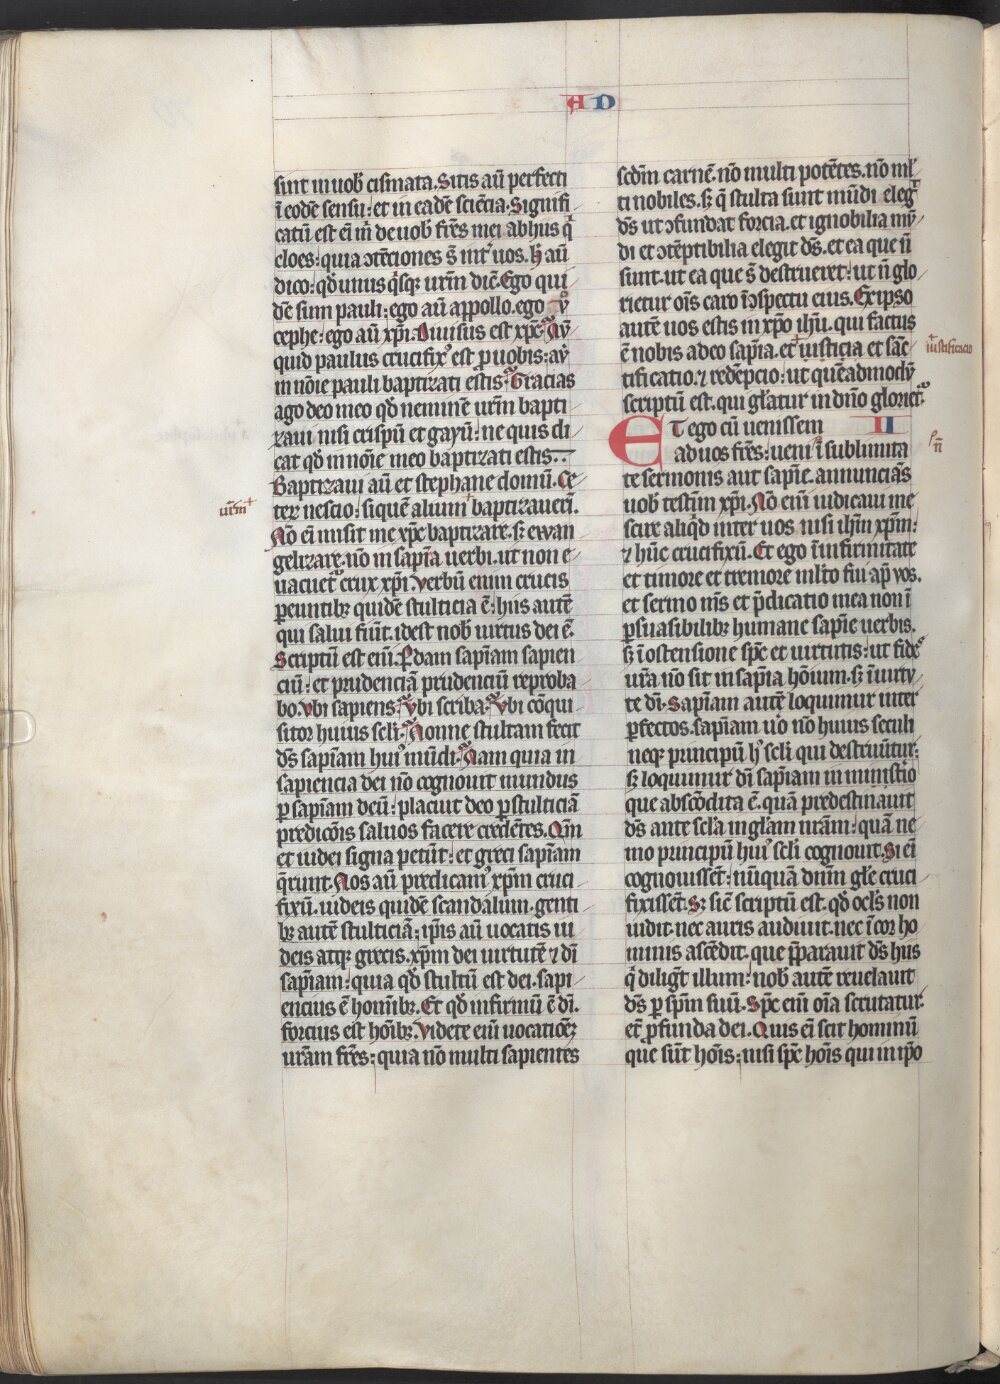 A D
sint in uob̄ cismata. Sitis aū perfecti
ī eodē sensu: et in eadē sciēcia. Signifi
catū est eī m̄ de uob̄ fr̄es mei ab hus q̄
cloes: quia ↄtēciones s̄ int̄ uos. h̄ aū
dico: qd̄ unus q̄sqꝫ urm̄ dic̄. Ego qui
dē sum pauli: ego aū appollo. ego v̊
cephe: ego aū xp̄i. Diuisus est xp̄c. Nū
quid paulus crucifixꝰ est p uobis: aȳ
in nōie pauli baptizati estis. Gracias
ago deo meo qd̄ neminē urm̄ bapti
zaui nisi crispū et gayū: ne quis di
cat qd̄ in nōie meo baptizati estis.
Baptizaui aū et stephane domū. Ce
urm̄
terꝫ nescio: si quē alium baptizauerī.
Nō eī misit me xp̄c baptizare. sꝫ ewan
gelizare. nō in sapīa uerbi. ut non e
uacuet̄ crux xp̄i. Verbū enim crucis
ꝑeuntibꝫ quidē stulticia ē: hiis autē
qui salui fiūt. idest nob̄ uirtus dei ē.
Scriptū est enī. Perdam sapīam sapien
ciū: et prudenciā prudenciū reproba
bo. Vbi sapiens. Vbi scriba. Vbi cōqui
sitor huius sc̄li. Nonne stultam fecit
ds̄ sapīam huiꝰ mūdi. Nam quia in
sapiencia dei nō cognouit mundus
ꝑ sapīam deū: placuit deo ꝑ stulticiā
predicōis saluos facere credētes. Qm̄
et iudei signa petūt: et greci sapīam
q̄runt. Nos aū predicamꝰ xp̄m cruci
fixū. iudeis quidē scandalum. genti
bꝫ autē stulticiā: ip̄is aū uocatis iu
deis atqꝫ grecis. xp̄m dei uirtutē ⁊ dī
sapīam: quia qd̄ stultū est dei. sapi
encius ē hominibꝫ. Et qd̄ infirmū ē dī.
forcius est hōibꝫ. Videte enī uocatiōeꝫ
urām fr̄es: quia nō multi sapientes
scdm̄ carnē. nō multi potētes. nō ml̄
ti nobiles. sꝫ q̄ stulta sunt mūdi eleḡ
ds̄ ut ↄfundat forcia. et ignobilia mū
di et ↄtēptibilia elegit ds̄. et ea que n̄
sunt. ut ea que s̄ destrueret: ut n̄ glo
rietur oīs caro ī ↄspectu eius. Ex ipso
autē uos estis in xp̄o ih̄u. qui factus
ē nobis a deo sapīa. et iusticia et sāc
iustificacio
tificatio. ⁊ redēpcio: ut quēadmodū
scriptū est. qui gl̄atur in dn̄o glorietᷣ.
II
ET ego cū uenissem
ad uos fr̄es: ueni ī sublimita
n̄
te sermonis aut sapīe. annuncians
uob̄ testīm xp̄i. Nō enī iudicaui me
scire aliqd̄ inter uos nisi ih̄m xp̄m:
⁊ hūc crucifixū. Et ego ī infirmitate
et timore et tremore ml̄to fui ap̄ vos.
et sermo m̄s et p̄dicatio mea non ī
ꝑsuasibilibꝫ humane sapīe uerbis.
sꝫ ī ostensione sp̄c et uirtutis: ut fides
urā nō sit in sapīa hōium. sꝫ ī uirtu
te dī. Sapīam autē loquimur inter
ꝑfectos. sapīam uo nō huius seculi
neqꝫ principū hꝰ sc̄li qui destruūtur:
sꝫ loquimur dī sapīam in ministīo
que abscōdita ē. quā predestinauit
ds̄ ante sc̄la in gl̄am urām: quā ne
mo principū huiꝰ sc̄li cognouit. Si eī
cognouissēt: nūquā dnm̄ gl̄e cruci
fixissēt. Sꝫ sic̄ scriptū est. qd̄ ocl̄s non
uidit. nec auris audiuit. nec ī cor ho
minis ascēdit. que p̄parauit ds̄ hiis
q̄ diligūt illum: nob̄ autē reuelauit
ds̄ ꝑ sp̄m suū. Sp̄c enī oīa scrutatur.
et̄ ꝓfunda dei. Quis eī scit hominū
que sūt hōis: nisi sp̄c hōis qui in ip̄o